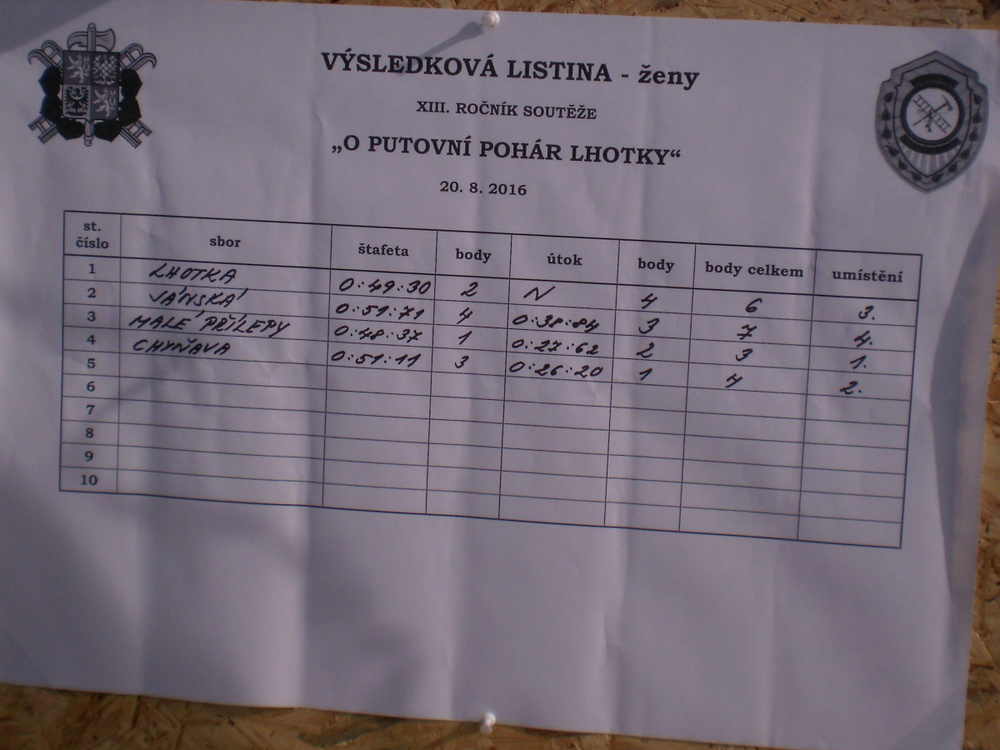 VÝSLEDKOVÁ LISTINA - ženy
XIII. ROČNÍK SOUTĚŽE
„O PUTOVNÍ POHÁR LHOTKY“
20. 8. 2016
st. číslo sbor štafeta body útok body body celkem umístění
1 LHOTKA 0:49:30 2 N 4 6 3.
2 VÁNSKÁ 0:51:71 4 0:38:84 3 7 4.
3 MALÉ PŘÍLEPY 0:48:37 1 0:27:62 2 3 1.
4 CHYŇAVA 0:51:11 3 0:26:20 1 4 2.
5
6
7
8
9
10